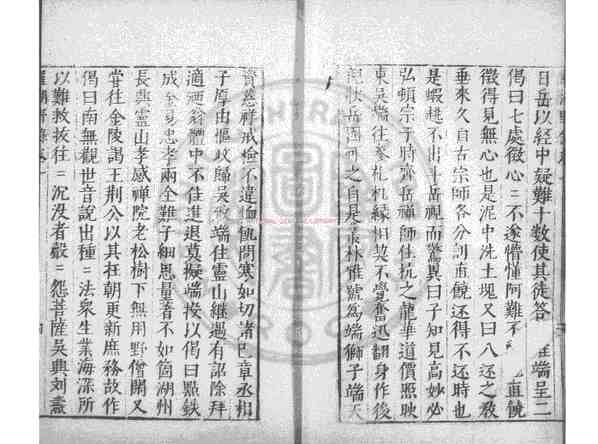 日岳以經中疑難十數使其徒答 端呈二
偈曰七處徵心＝不遂懵懂阿難不 直饒
徵得見無心也是泥中洗土塊又曰八还之教
垂來久自古宗師各分剖直饒还得不还時也
是蝦跳不出斗岳視而驚異曰子知見高妙必
弘頓宗于時齊岳禪師住杭之龍華道價照映
東吳端往參札机緣相契不覺奮迅翻身作
狀岳因可之自是叢林雅號為端獅子端天
資慈祥戒檢不違恤飢問寒如切諸已章丞相
子厚由樞政歸吳 端往靈山繼遇有詔除拜
適 翁體中不佳進退莫擬端投以偈曰點鉄
成金易忠孝兩全難子細思量着不如箇湖州
長興靈山孝感禪院老松樹下無用野僧閑又
嘗往金陵謁王荊公以其在朝更新庶務故作
偈曰南無觀世音說出種＝法衆生業海深所
以難救拔往＝沉没者嚴＝怨菩薩吳興刘燾